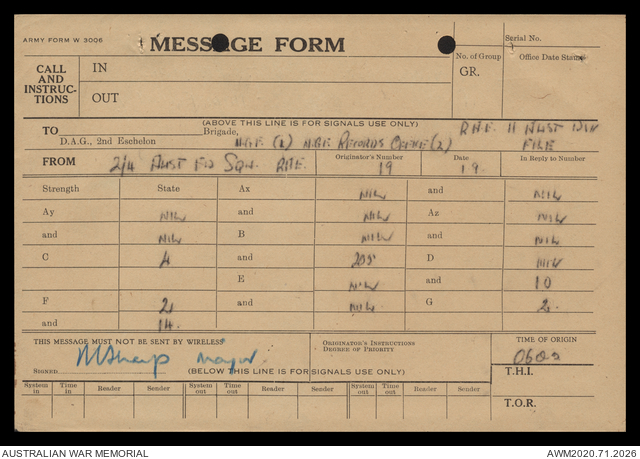 ARMY FORM W 3006
MESSAGE FORM
Serial No.
CALL AND INSTRUCTIONS
IN
OUT
No. of Group
GR.
Office Date Stamp
(ABOVE THIS LINE IS FOR SIGNALS USE ONLY)
TO Brigade,
D.A.G., 2nd Eschelon
Records Office (2)
R.A.E. 11 AUST DIV
FILE
FROM 2/4 AUST FD SQN. RAE.
Originator's Number 19
Date 19.
In Reply to Number
Strength State Ax NIL and NIL
Ay NIL and NIL Az NIL
and NIL B NIL and NIL
C 4 and 205 D NIL
E NIL and 10
F 2 and NIL G 2.
and 14.
THIS MESSAGE MUST NOT BE SENT BY WIRELESS
ORIGINATOR'S INSTRUCTIONS
DEGREE OF PRIORITY
TIME OF ORIGIN
0600
SIGNED Major.
(BELOW THIS LINE IS FOR SIGNALS USE ONLY)
T.H.I.
System in Time in Reader Sender System out Time out Reader Sender System out Time out Reader Sender
T.O.R.
AUSTRALIAN WAR MEMORIAL
AWM2020.71.2026